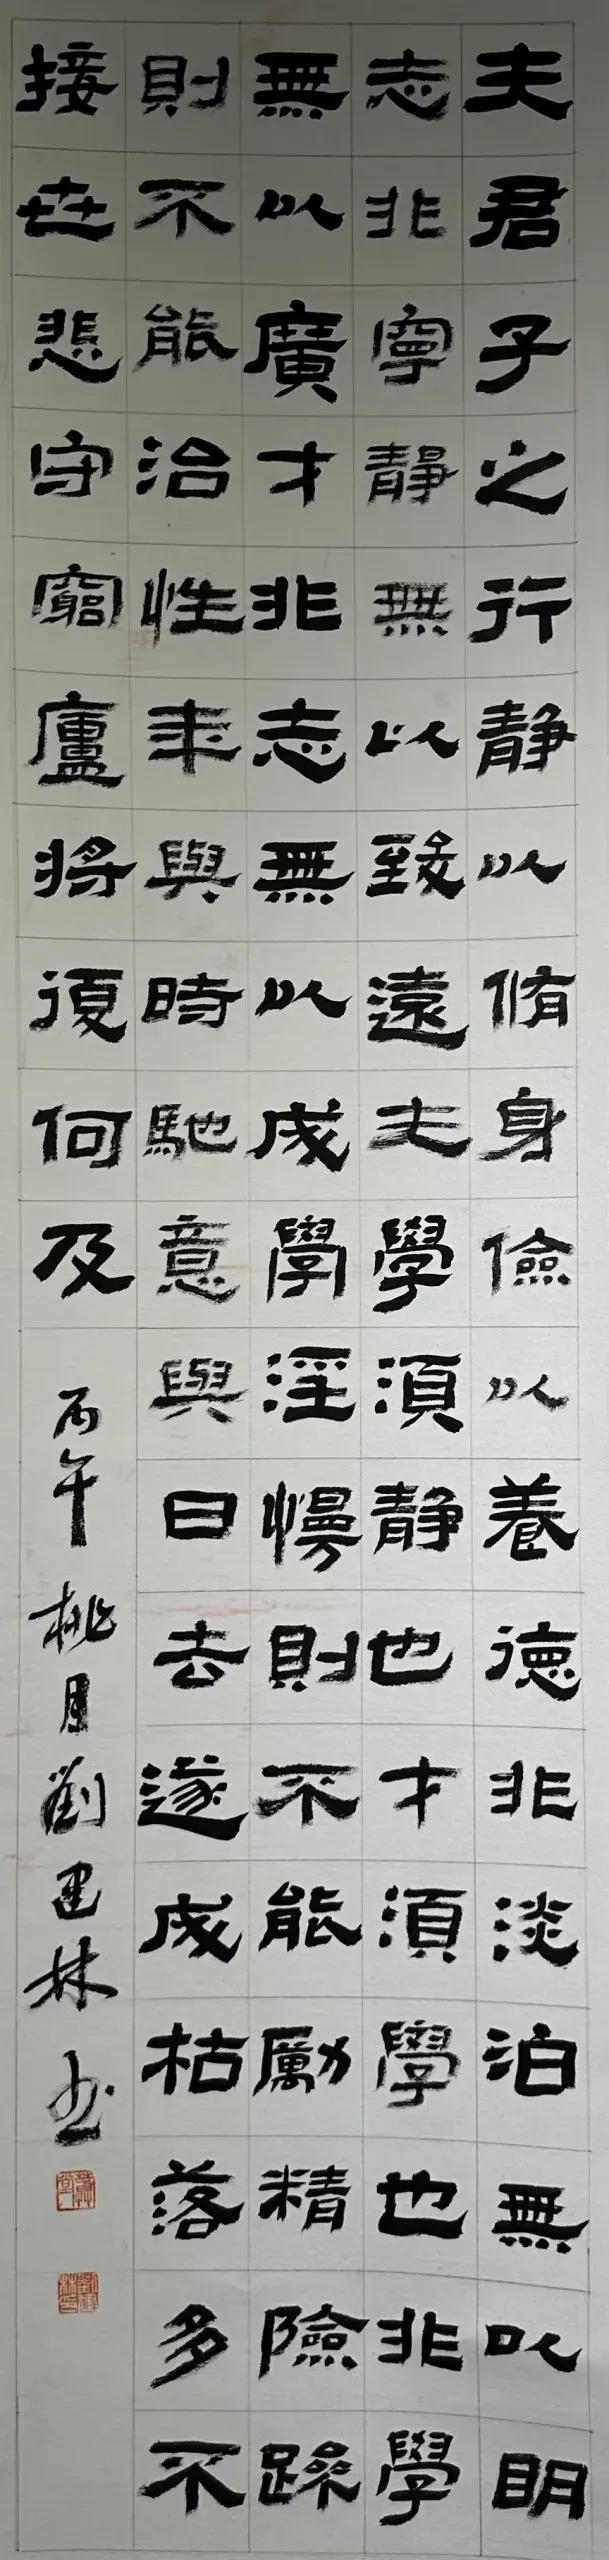 夫君子之行静以脩身儉以養德非淡泊無以明
志非寧靜無以致遠夫學須静也才須學也非學
無以廣才非志無以成學淫慢則不能勵精險躁
則不能治性年與時馳意與日去遂成枯落多不
接世悲守窮廬將復何及
丙午桃月劉建林书